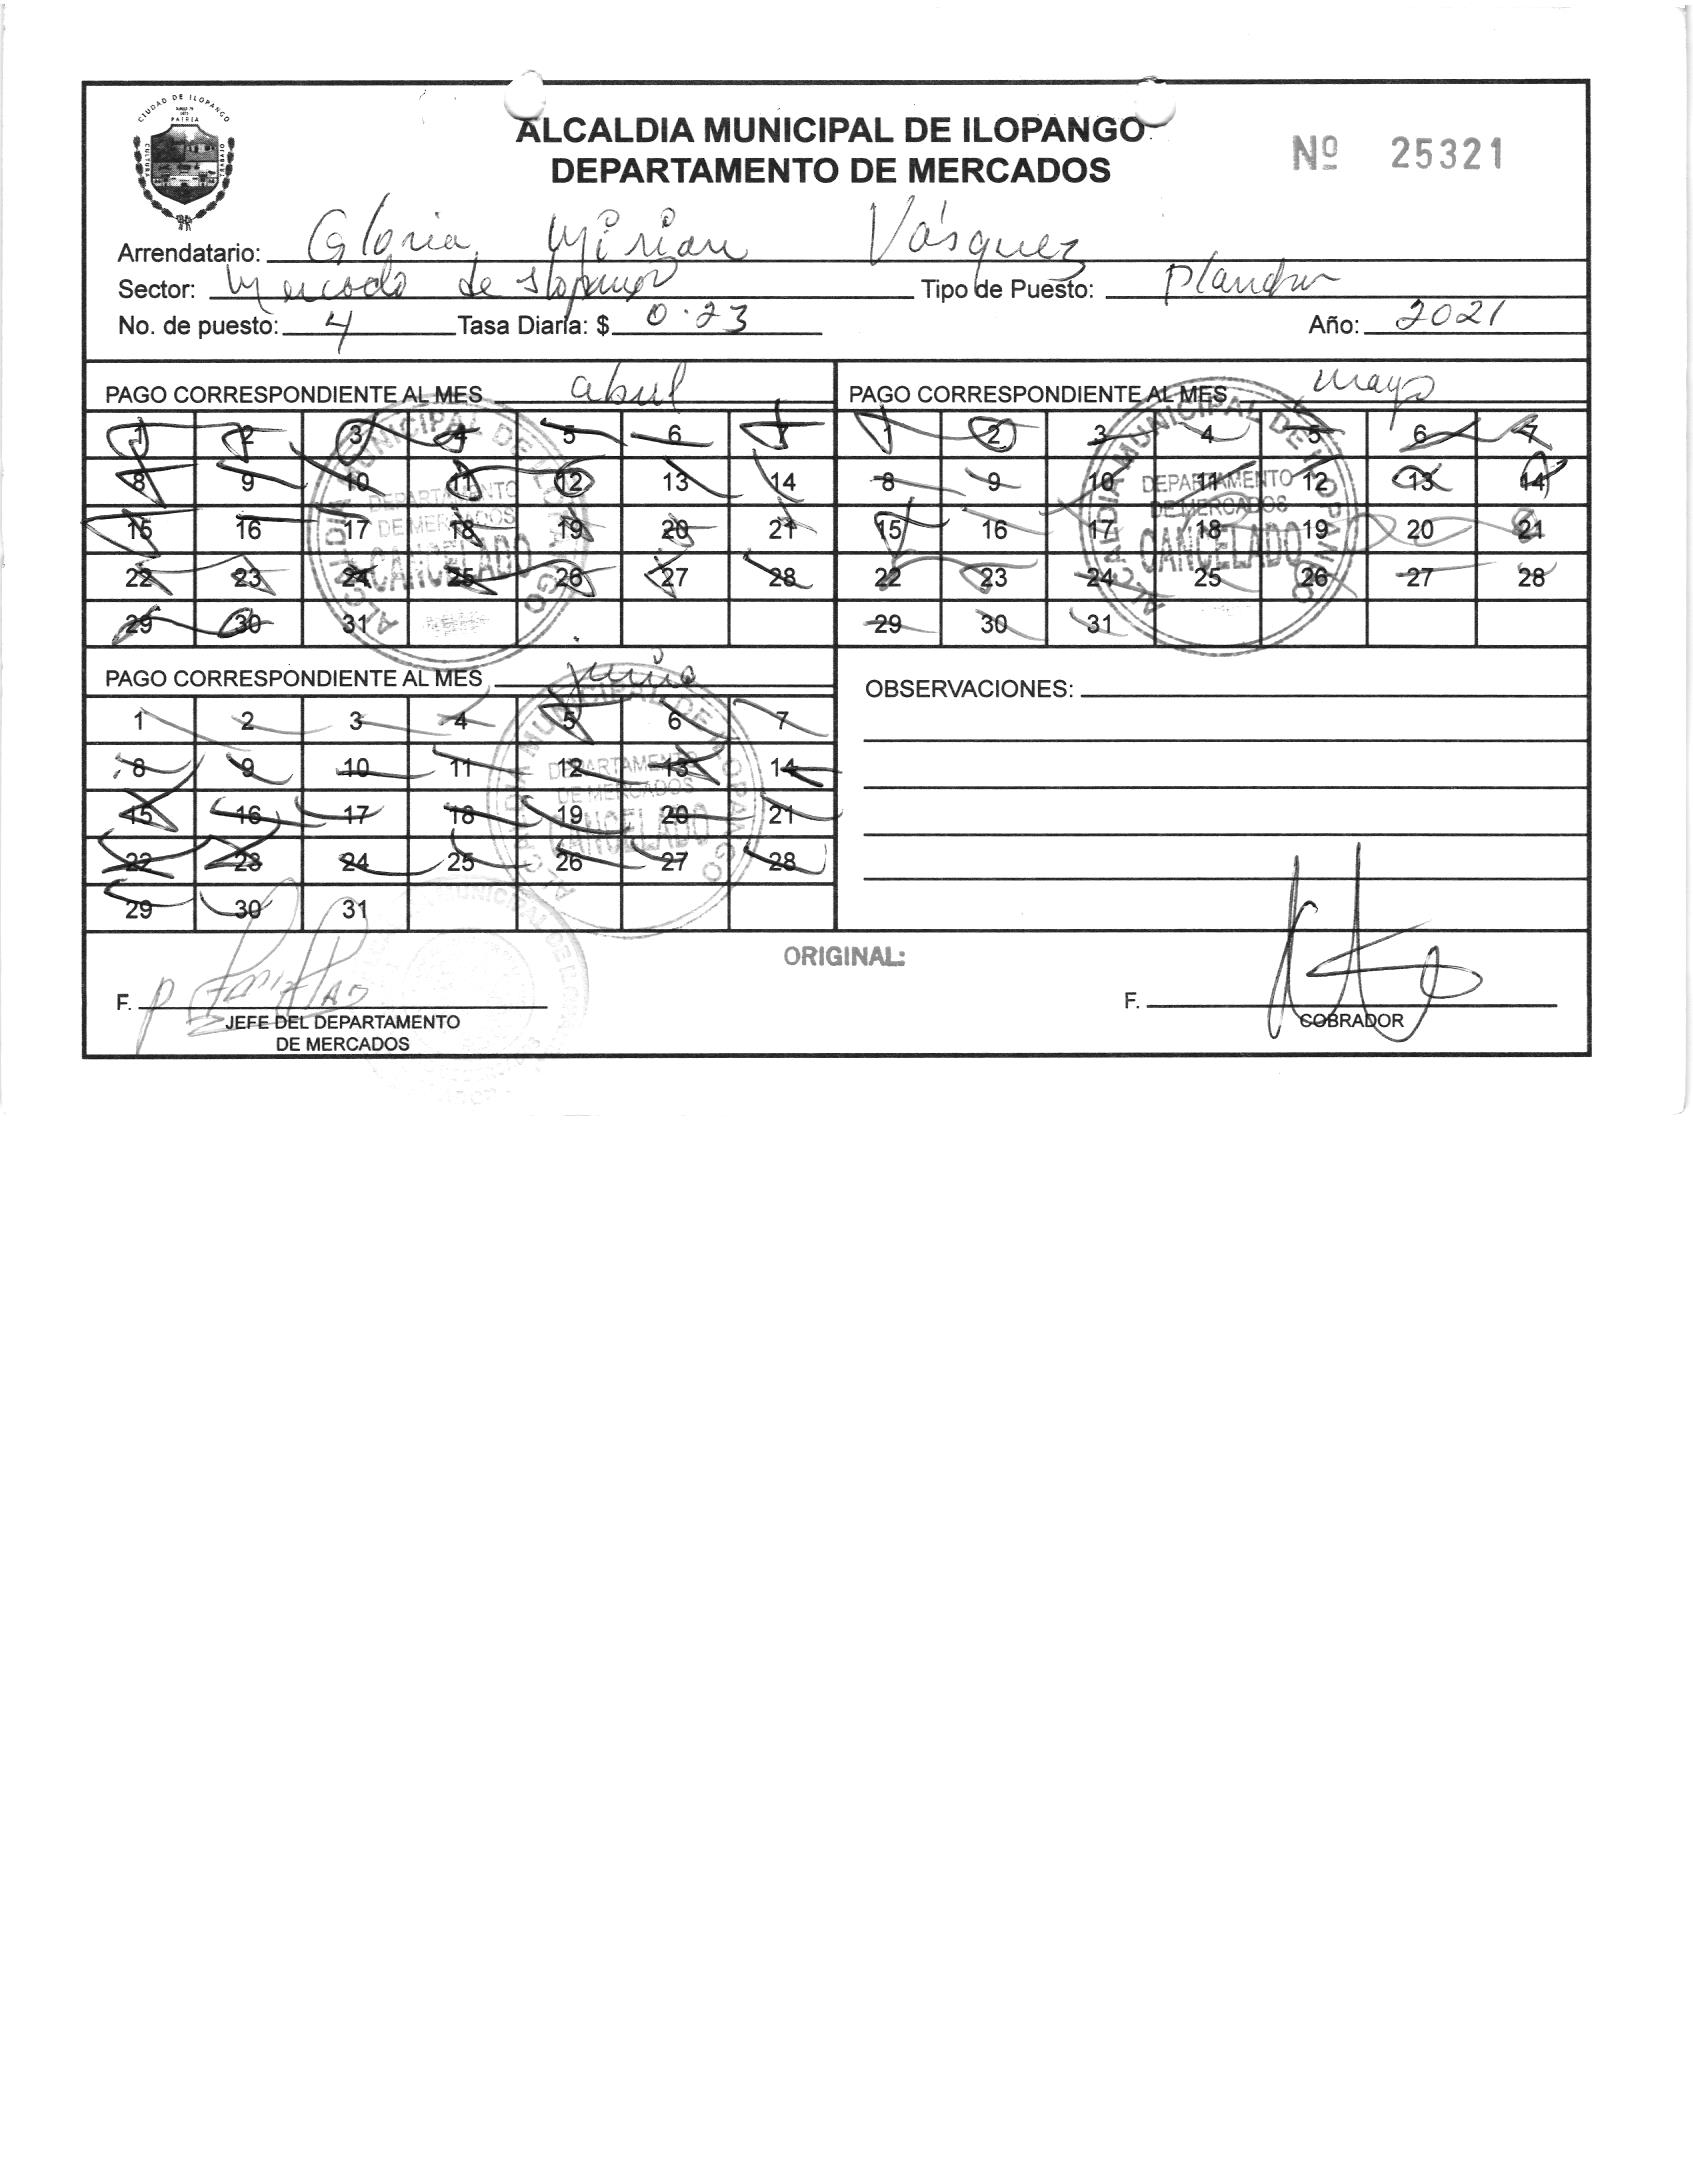 CIUDAD DE ILOPANGO
PATRIA
CULTURA
TRABAJO
ALCALDIA MUNICIPAL DE ILOPANGO
DEPARTAMENTO DE MERCADOS
Nº 25321
Arrendatario: Gloria Mirian Vásquez
Sector: Mercado de Ilopango Tipo de Puesto:
No. de puesto: 4 Tasa Diaria: $ 0.23 Año: 2021
PAGO CORRESPONDIENTE AL MES abril
1 2 3 4 5 6 7
8 9 10 11 12 13 14
15 16 17 18 19 20 21
22 23 24 25 26 27 28
29 30 31
ALCALDIA MUNICIPAL DE ILOPANGO
DEPARTAMENTO
DE MERCADOS
CANCELADO
PAGO CORRESPONDIENTE AL MES mayo
1 2 3 4 5 6 7
8 9 10 11 12 13 14
15 16 17 18 19 20 21
22 23 24 25 26 27 28
29 30 31
ALCALDIA MUNICIPAL DE ILOPANGO
DEPARTAMENTO
DE MERCADOS
CANCELADO
PAGO CORRESPONDIENTE AL MES junio
1 2 3 4 5 6 7
8 9 10 11 12 13 14
15 16 17 18 19 20 21
22 23 24 25 26 27 28
29 30 31
ALCALDIA MUNICIPAL DE ILOPANGO
DEPARTAMENTO
DE MERCADOS
CANCELADO
OBSERVACIONES:
ORIGINAL:
F.
JEFE DEL DEPARTAMENTO
DE MERCADOS
MUNICIPAL DE
F.
COBRADOR